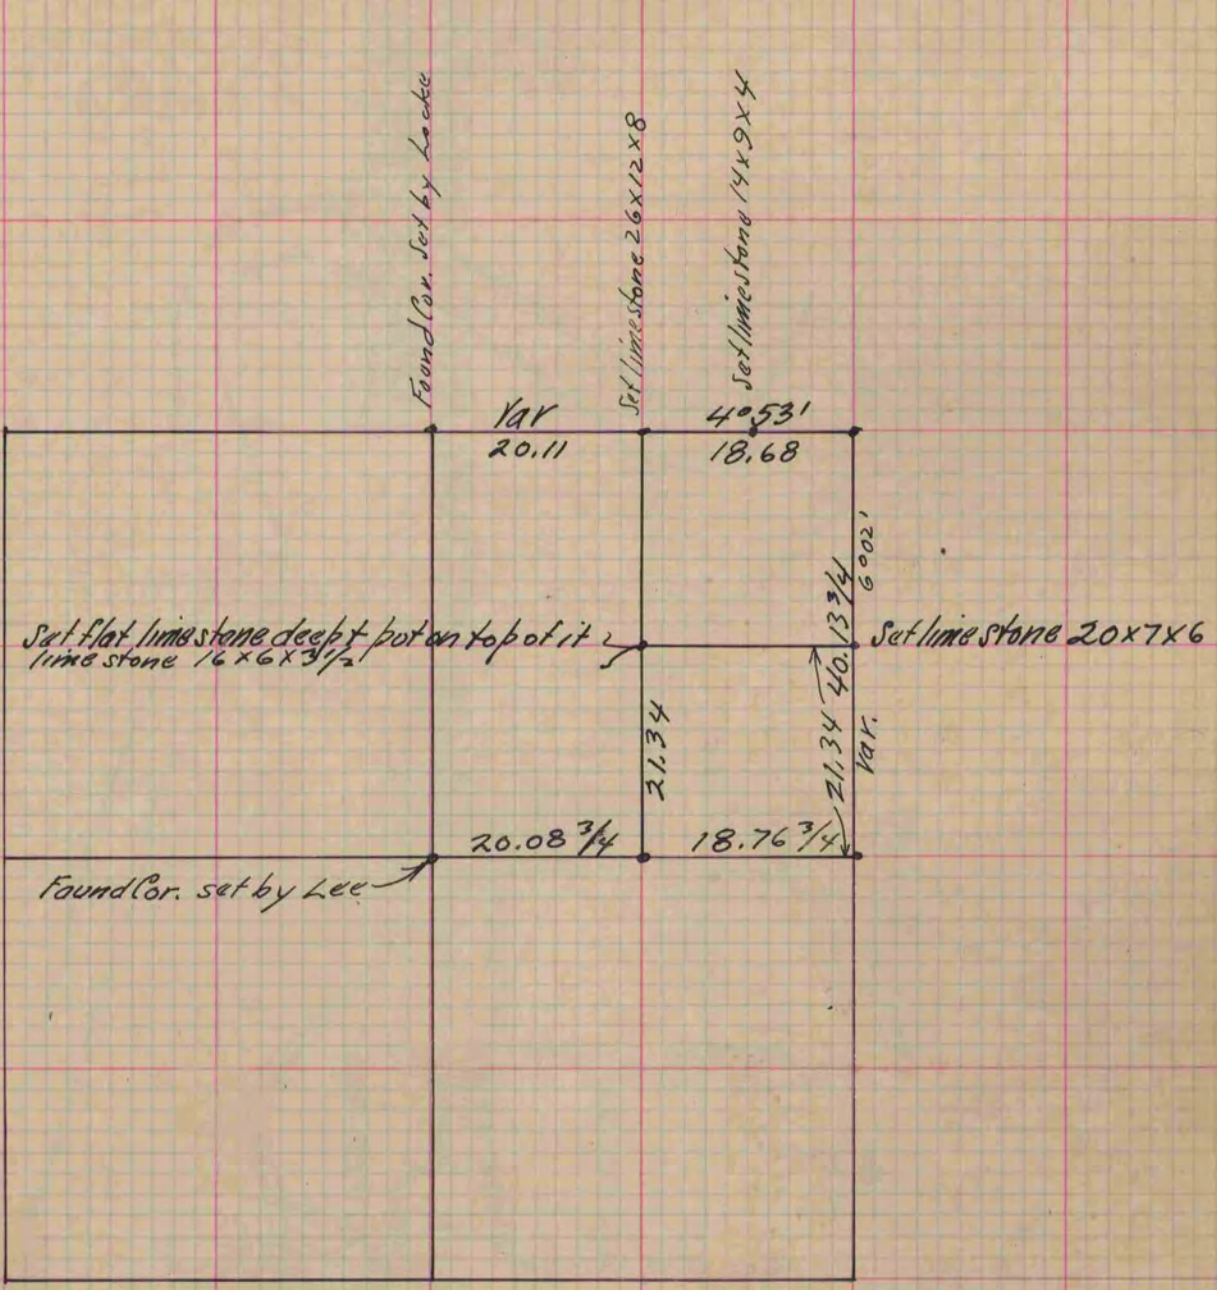 Found Cor. Set by Locke
Set limestone 26x12x8
Set limestone 14x9x4
Var
4°53'
20.11
18.68
6°02'
40.13 3/4
Set flat limestone deep + put on top of it
limestone 16x6x3 1/2
Set limestone 20x7x6
21.34
21.34
Var.
20.08 3/4
18.76 3/4
Found Cor. set by Lee